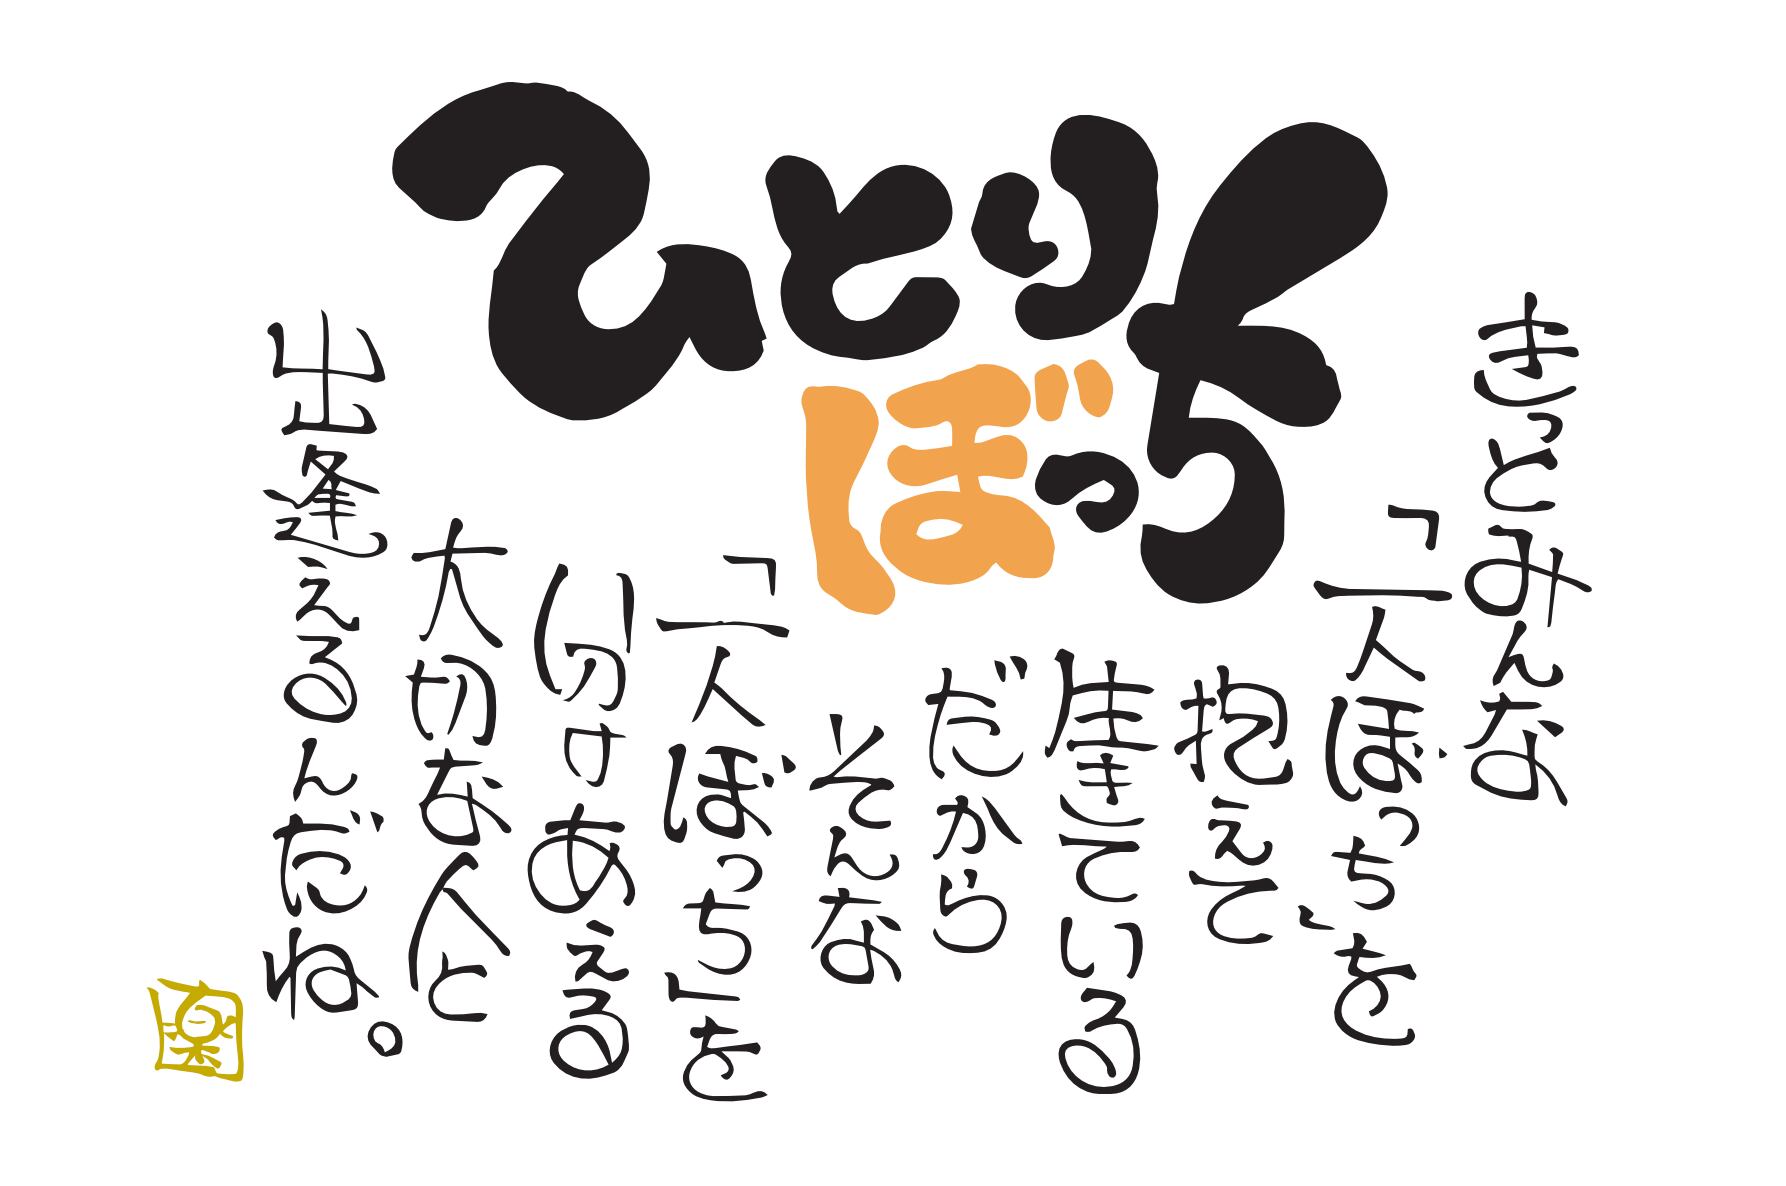 ひとりぼっち
きっとみんな
「一人ぼっち」を
抱えて
生きている
だから
そんな
「一人ぼっち」を
分けあえる
大切な人と
出逢えるんだね。
楽